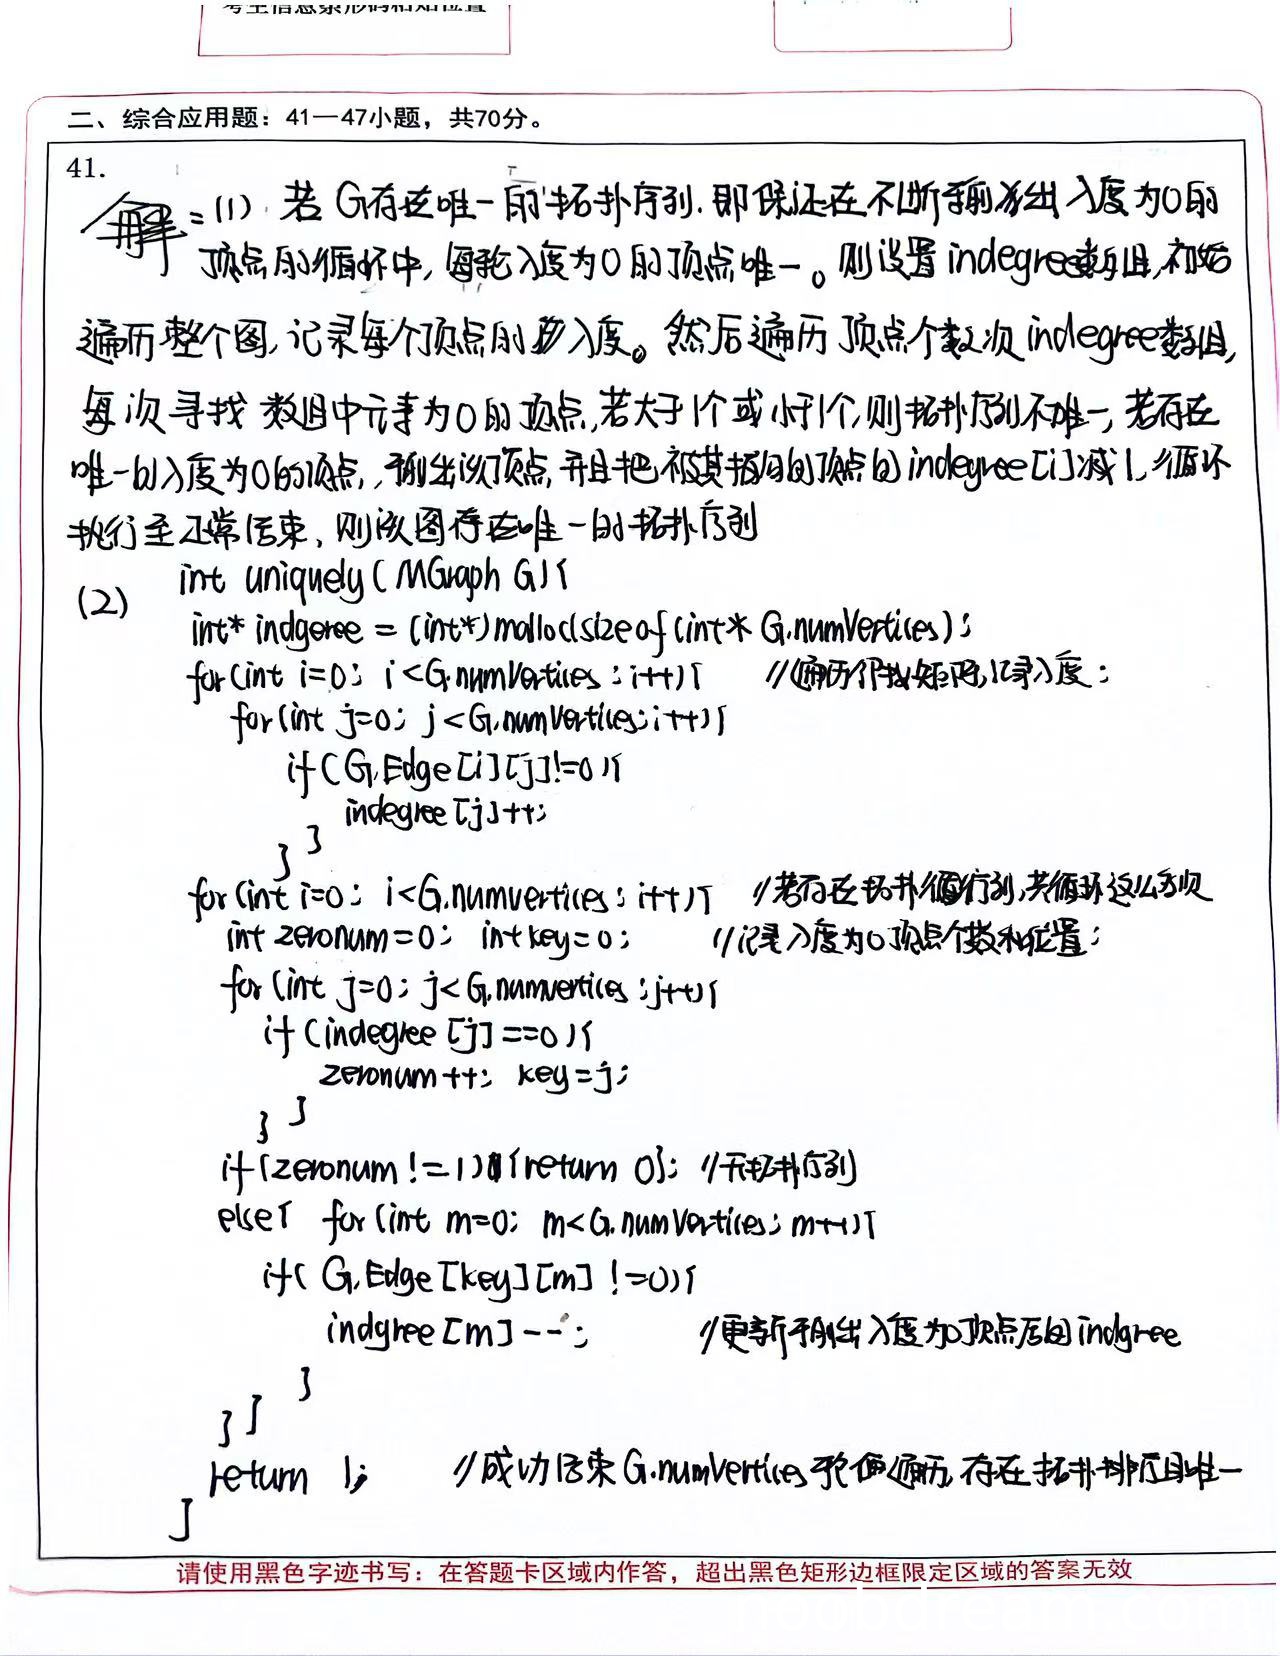 考生信息条形码粘贴位置
二、综合应用题：41—47小题，共70分。
41.
解：(1) 若G存在唯一的拓扑序列，即保证在不断删除出入度为0的
顶点的循环中，每轮入度为0的顶点唯一。则设置indegree数组，初始
遍历整个图，记录每个顶点的入度。然后遍历顶点个数次indegree数组，
每次寻找数组中元素为0的顶点，若大于1个或小于1个，则拓扑序列不唯一，若存在
唯一的入度为0的顶点，删出该顶点，并且把被其指向的顶点的indegree[i]减1，循环
执行至正常结束，则该图存在唯一的拓扑序列
(2) int uniquely(MGraph G){
int* indgeree = (int*)malloc(sizeof(int* G.numVertices);
for(int i=0; i<G.numVertices; i++){ //遍历邻接矩阵，记录入度;
for(int j=0; j<G.numVertices; i++){
if(G.Edge[i][j]!=0){
indegree[j]++;
} }
for(int i=0; i<G.numvertices; i++){ //若存在拓扑序列，共循环这么多次
int zeronum=0; int key=0; //记录入度为0顶点个数和位置;
for(int j=0; j<G.numvertices; j++){
if(indegree[j]==0){
zeronum++; key=j;
} }
if(zeronum!=1){return 0}; //无拓扑序列
else{ for(int m=0; m<G.numVertices; m++){
if(G.Edge[key][m]!=0){
indgree[m]--; //更新删出入度为0顶点后的indgree
}
} }
return 1; //成功结束G.numVertices 遍历，存在拓扑排序且唯一
}
请使用黑色字迹书写：在答题卡区域内作答，超出黑色矩形边框限定区域的答案无效